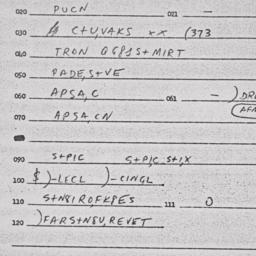 020 PUCN 021 —
030 A C+U,VAKS xx (373
040 TRON Q6P1S+MIRT
050 PADE,S+VE
060 APSA,C 061 — ) DR
070 APSA,CN (AF
090 S+PIC S+P,C,S+,X
100 $)-LECL )-CINGL
110 S+NSIROFKPES 111 O
120 )FARS+NSU,REVET